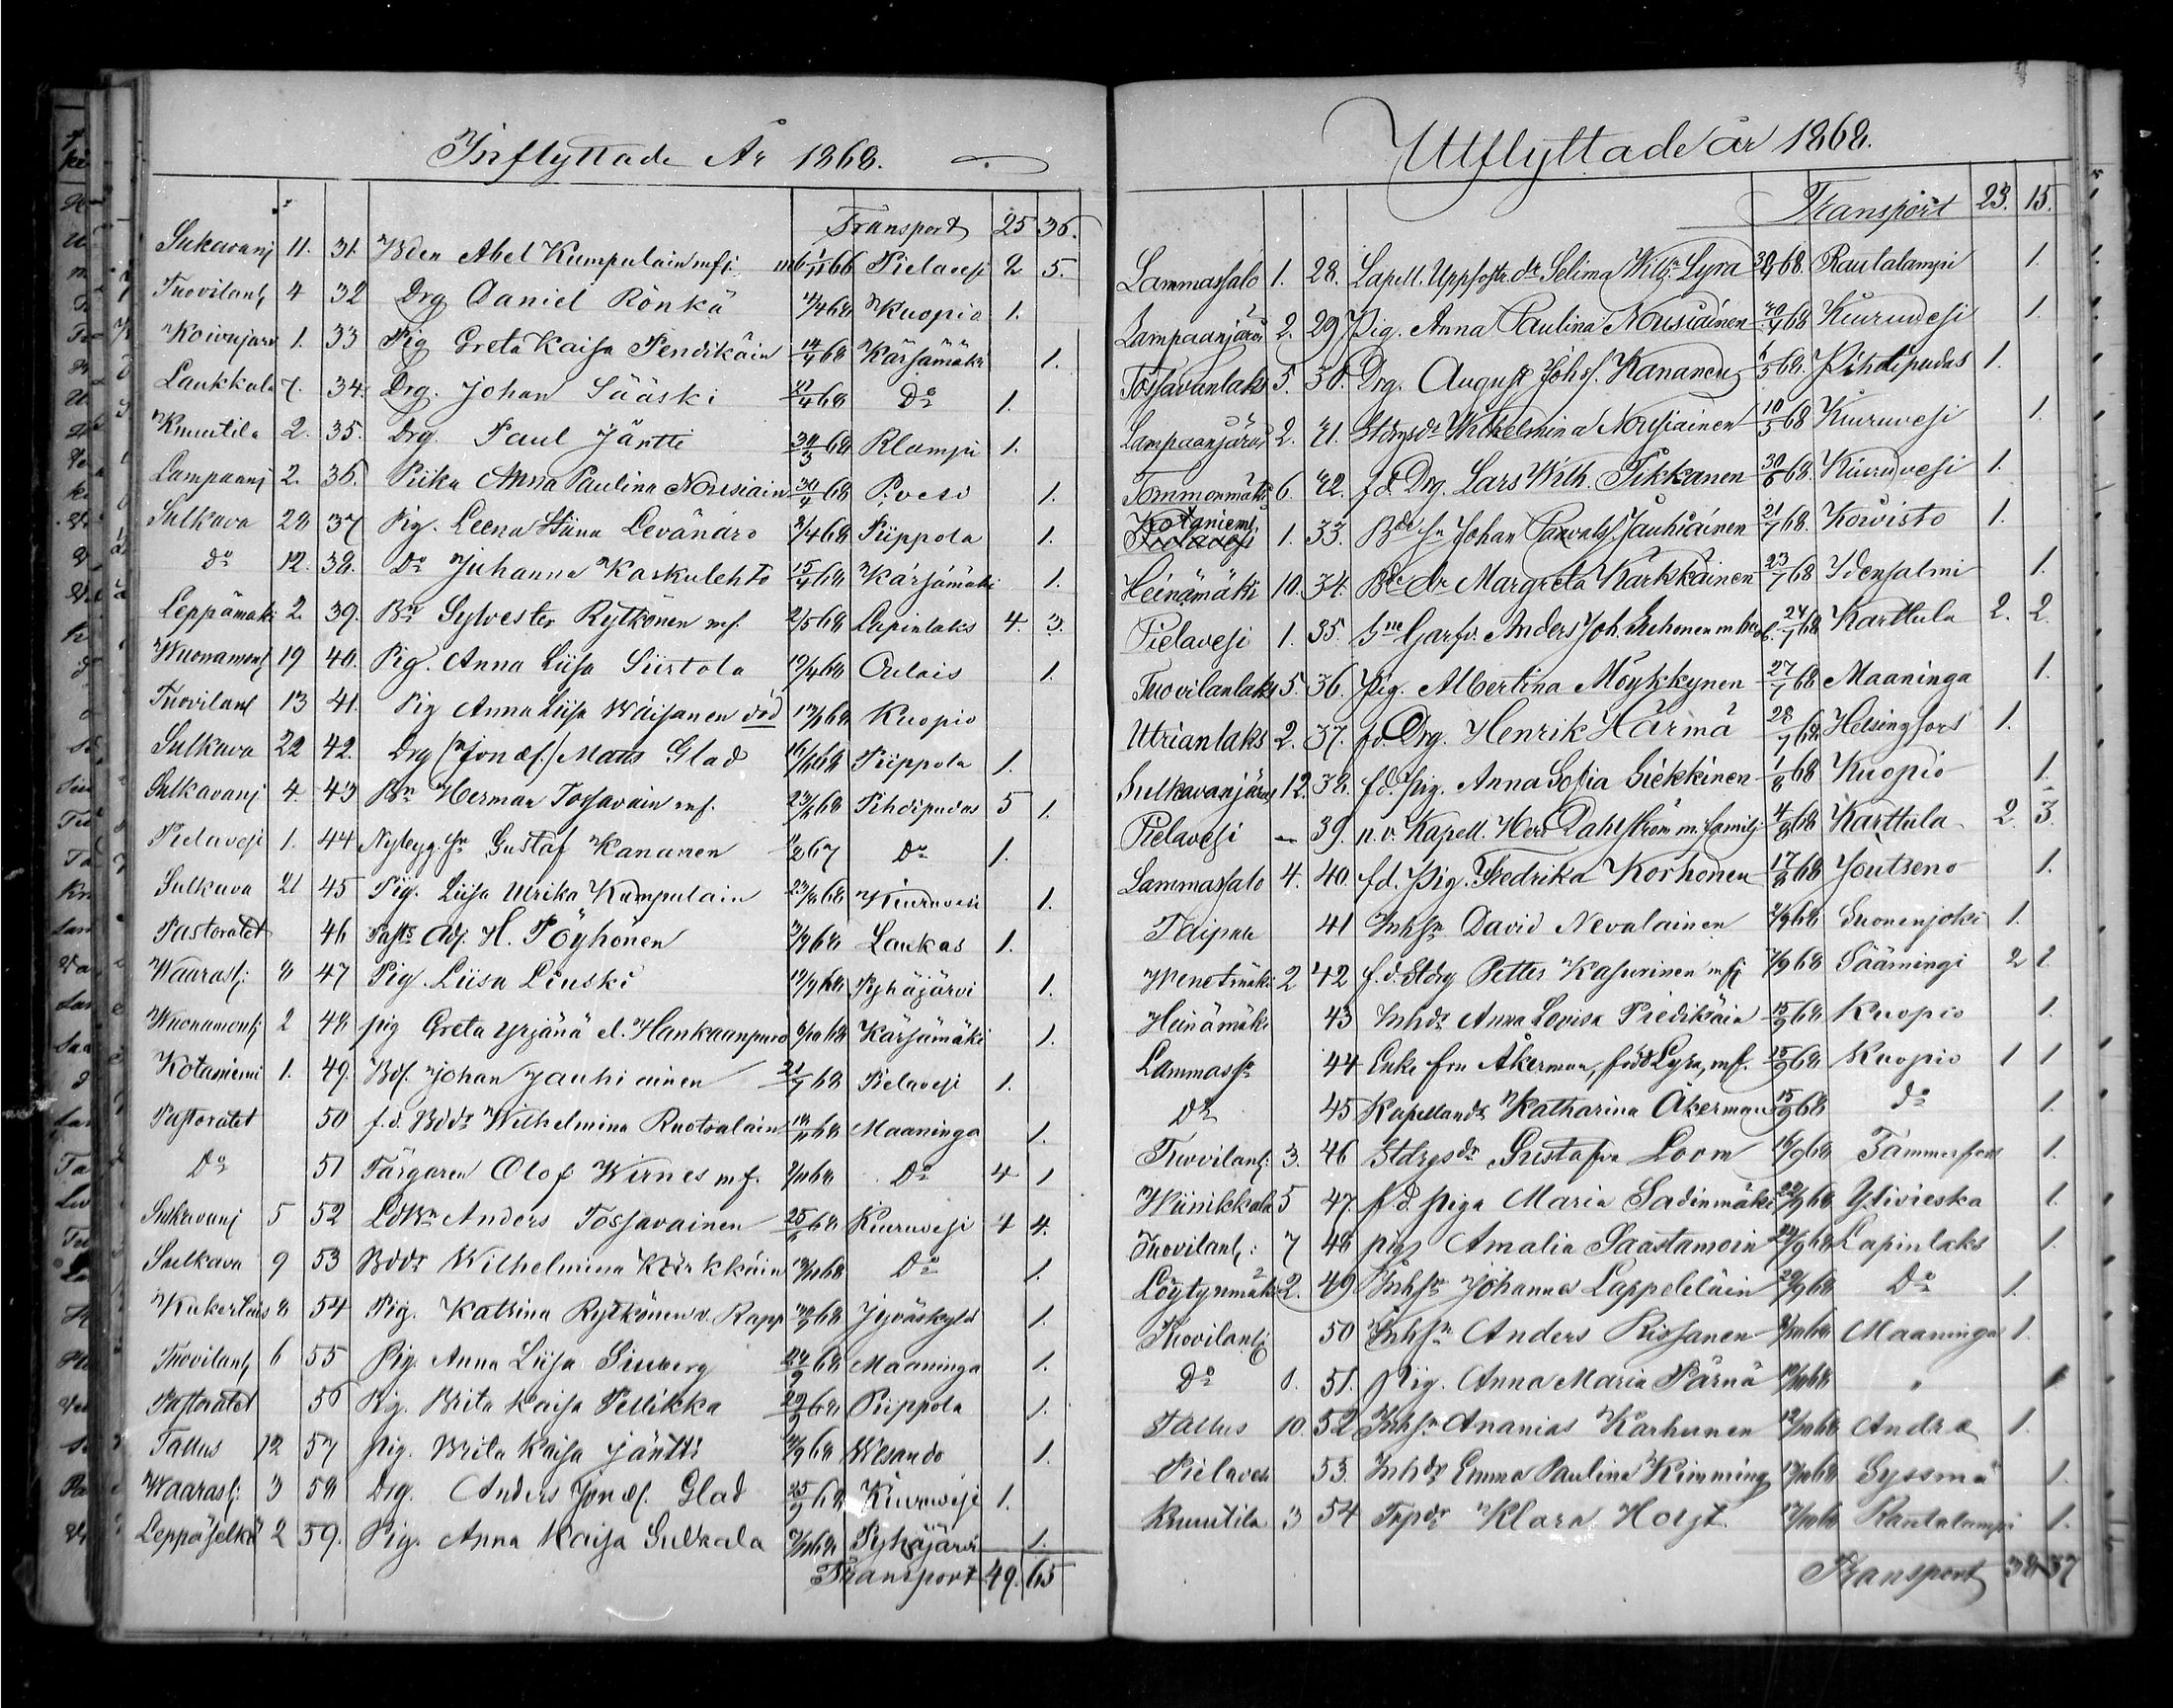 Inflyttade År 1868.
Transport 25 36.
Sukavanj 11. 31. Bden Abel Kumpulain mfj. 66 Pielavesi 2 5.
Tuovilanl 4 32 Drg Daniel Rönkä 68 Kuopio 1.
Koivujärv 1. 33 Pig Greta Kaisa Pendikäin 14/4 68 Kärsämäki 1.
Laukkala 7. 34. Drg. Johan Sääski 68 Do 1.
Knuutila 2. 35. Drg. Paul Jäntti 30/3 68 Rlampi 1.
Lampaanj 2. 36. Piika Anna Paulina Nousiain 30/4 68 P.vesi 1.
Sulkava 28 37 Pig. Leena Stiina Levänäro 68 Piippola 1.
do 12. 38. Do Juhanna Kaskulehto 15/4 68 Kärsämäki 1.
Leppämäki 2. 39. Bn Sylvester Rytkönen mf. 2/5 68 Lapinlaks 4. 3.
Wuonamonl 19 40. Pig. Anna Liisa Siirtola 19/4 68 Oulais 1.
Tuovilanl 13 41. Pig Anna Liisa Wäisänen död 68 Kuopio
Sulkava 22 42. Drg (Jonæs.) Mats Glad 68 Piippola 1.
Sulkavanj 4. 43 Bn Herman Tossavain mf. 68 Pihdipudas 5 1.
Pielavesi 1. 44 Nybygg.sn Gustaf Kananen 67 Do 1.
Sulkava 21 45 Pig. Liisa Ulrika Kumpulain 68 Kiuruvesi 1.
Pastoratet 46 Pasts Adj. H. Pöyhönen 68 Laukas 1.
Waarasl: 8 47 Pig. Liisa Linski 68 Pyhäjärvi 1.
Wuonamonlj 2 48 pig Greta Yrjänä el. Hankaanpuro 68 Kärsämäki 1.
Kotaniemi 1. 49. Bds. Johan Jauhiainen 21/7 68 Pielavesi 1.
Pastoratet 50 f.d. Bddr Wilhelmina Ruotsalain 68 Maaninga 1.
Do 51 Färgaren Olof Wirnes mf. 68 Do 4 1
Sukavanj 5 52 Ldbn Anders Tossavainen 68 Kiuruvesi 4 4.
Sulkava 9 53 Bddr Wilhelmina Kärkkäin 68 Do 1.
Kukerlaks 8 54 Pig. Katrina Rytkönen v. Rapp 68 Jyväskylä 1.
Tuovilanl 6 55 Pig. Anna Liisa Sinberg 68 Maaninga 1.
Pastoratet 56 Pig. Brita Kaisa Pellikka 29/9 68 Piippola 1.
Tallus 12 57 pig. Brita Kaisa Jäntti 68 Wesando 1.
Waarasl: 3 58 Drg. Anders Jonæs. Glad 25/9 68 Kiuruvesi 1.
Leppäselkä 2 59. Pig. Anna Kaisa Sulkala 68 Pyhäjärvi 1.
Transport 49. 65
Utflyttade år 1868.
Transport 23. 15.
Lammassalo 1. 28. Capell. Uppfostr. dr Selima Wilh. Lyra 68. Rautalampi 1.
Lampaanjärvi 2. 29 Pig. Anna Paulina Nousiainen 68 Kiuruvesi 1.
Tossavanlaks 5. 30. Drg. August Johs. Kananen 68. Pihdipudas 1.
Lampaanjärvi 2. 31. Stdrgsdr Wilhelmina Nousiainen 10/5 68 Kiuruvesi 1.
Tommonmäki 6. 32. f.d. Drg. Lars Wilh. Tikkanen 30/6 68. Kiuruvesi 1.
Kotaniemi
Pielavesi 1. 33. Bde sn Johan Jauhiainen 21/7 68. Koivisto 1.
Heinämäki 10. 34. Bde dr Margreta Kärkkäinen 23/7 68 Idensalmi 1.
Pielavesi 1. 35. Garfv. Anders Joh. 24/7 68 Karttula 2. 2.
Tuovilanlaks 5. 36. Pig. Albertina Möykkynen 27/7 68 Maaninga 1.
Utrianlaks 2. 37. f.d. Drg. Henrik Härmä 28/7 68 Helsingfors 1.
Sulkavanjärvi 12. 38. f.d. pig. Anna Sofia Siekkinen 1/8 68 Kuopio 1.
Pielavesi — 39. n.v. Kapell. Herr Dahlström m. familj. 4/8 68 Karttula 2. 3.
Lammassalo 4. 40. f.d. Pig. Fredrika Korhonen 17/8 68 Joutseno 1.
Taipale 41 Inhsn David Nevalainen 68 Suonenjoki 1.
Wenetmäki 2 42 f.d. Stdrg Petter Kasurinen mfj 68 Säämingi 2 1.
Heinämäki 43 Inhdr Anna Lovisa Piedikäin 15/9 68 Kuopio 1.
Lammass 44 Enke fru Åkerman, född Lyra, mf. 15/9 68 Kuopio 1 1
Do 45 Kapellandr Katharina Åkerman 15/9 68 do 1.
Tuovilanl: 3. 46 Stdrgsdr Gustafva Loom 16/9 68 Tammerfors 1.
Wiinikkala 5 47. f.d. piga Maria Sadinmäki 22/9 68 Ylivieska 1.
Tuovilanl: 7 48 pig Amalia Saastamoin 68 Lapinlaks 1.
Löytynmäki 2. 49 Inhsn Johannes Lappeteläin 29/9 68 Do 1.
Tuovilanlj 50 Inhsn Anders Rissanen 68 Maaninga 1.
Do 8. 51. Pig. Anna Maria Pärnä 68 " 1
Tallus 10. 52 Inhsn Ananias Karhunen 68 Andra 1.
Pielaves 53. Inhdr Emma Paulina Kimming 68 Syssmä 1.
Knuutila 3 54 Trpdr Klara Hoigt 68 Rautalampi 1.
Transport 38 37